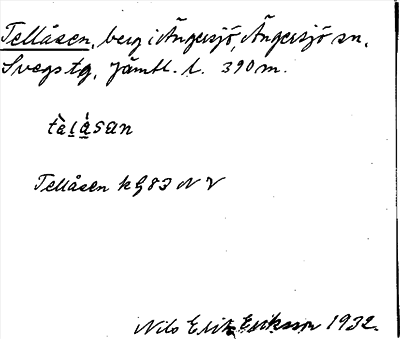 Tellåsen, berg i Ängersjö, Ängersjö sn,
Svegs tg, Jämtl. l. 390 m.
tèlå̀san
Tellåsen kg 83 NV
Nils Erik Eriksson 1932.